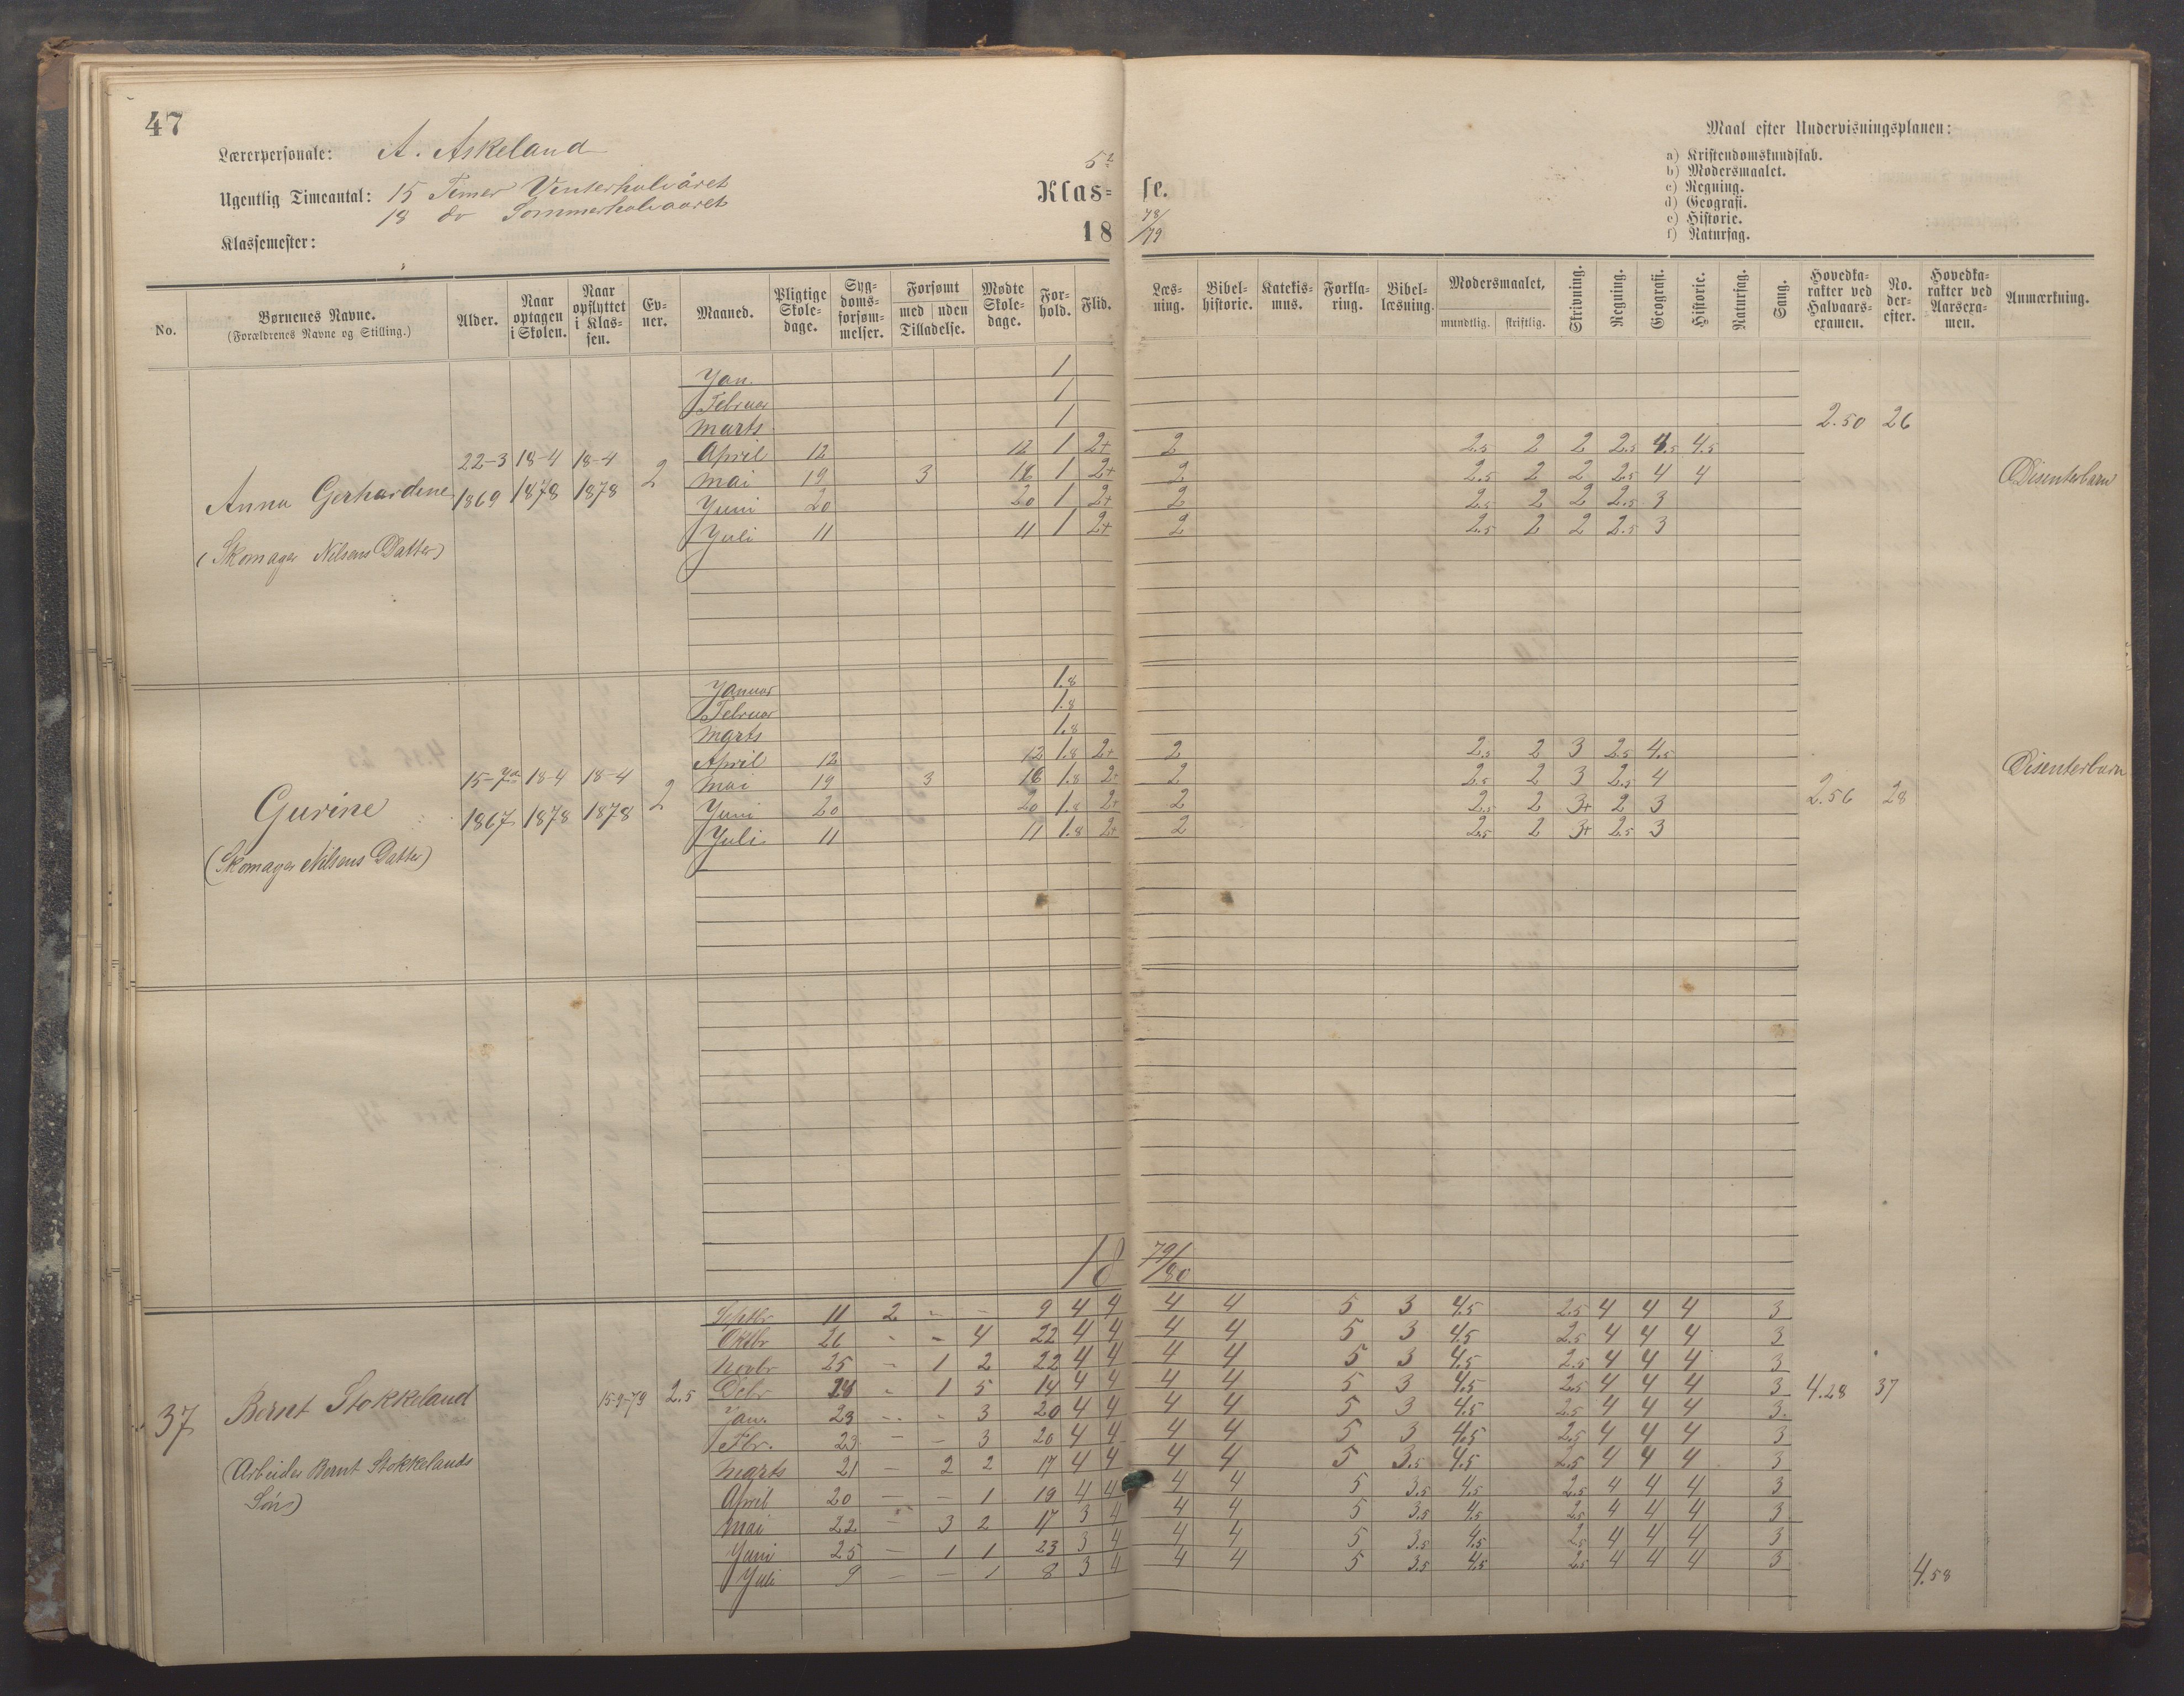 47
Lærerpersonale: A. Askeland
Ugentlig Timeantal: 15 Timer Vinterhalvåret
18 do Sommerhalvaaret
Klassemester:
5te
Klas= se.
18 78/79
Maal efter Undervisningsplanen:
a) Kristendomskundskab.
b) Modersmaalet.
c) Regning.
d) Geografi.
e) Historie.
f) Naturfag.
No. | Børnenes Navne. (Forældrenes Navne og Stilling.) | Alder. | Naar optagen i Skolen. | Naar opflyttet i Klassen. | Evner. | Maaned. | Pligtige Skoledage. | Sygdomsforsømmelser. | Forsømt med | uden Tilladelse. | Mødte Skoledage. | Forhold. | Flid. | Læsning. | Bibelhistorie. | Katekismus. | Forklaring. | Bibellæsning. | Modersmaalet, mundtlig. | skriftlig. | Skrivning. | Regning. | Geografi. | Historie. | Naturfag. | Sang. | Hovedkarakter ved Halvaarsexamen. | No. derefter. | Hovedkarakter ved Aarsexamen. | Anmærkning.
Anna Gerhardine
(Skomager Nilsens Datter)
22-3 1869 | 18-4 1878 | 18-4 1878 | 2
Jan. 1
Februar 1
Marts 1
April 12 12 1 2+ 2 2.5 2 2 2.5 4.5 4.5
Mai 19 3 16 1 2+ 2 2.5 2 2 2.5 4 4
Juni 20 20 1 2+ 2 2.5 2 2 2.5 3
Juli 11 11 1 2+ 2 2.5 2 2 2.5 3
2.50 26
Disenterbarn
Gurine
(Skomager Nilsens Datter)
1867 | 18-4 1878 | 18-4 1878 | 2
Januar 1.8
Februar 1.8
Marts 1.8
April 12 12 1.8 2+ 2 2.5 2 3 2.5 4.5
Mai 19 3 16 1.8 2+ 2 2.5 2 3 2.5 4
Juni 20 20 1.8 2+ 2 2.5 2 3+ 2 3
Juli 11 11 1.8 2+ 2 2.5 2 3+ 2.5 3
2.56 28
Disenterbarn
18 79/80
37 Bernt Stokkeland
(Arbeider Bernt Stokkelands
Søn)
15-9-79 | 2.5
Septbr 11 2 - - 9 4 4 4 4 5 3 4.5 2.5 4 4 4 3
Oktbr 26 - - 4 22 4 4 4 4 5 3 4.5 2.5 4 4 4 3
Novbr 25 - 1 2 22 4 4 4 4 5 3 4.5 2.5 4 4 4 3
Debr - 1 5 14 4 4 4 4 5 3 4.5 2.5 4 4 4 3
Jan. 23 - - 3 20 4 4 4 4 5 3 4.5 2.5 4 4 4 3.
Fbr. 23 - - 3 20 4 4 4 4 5 3 4.5 2.5 4 4 4 3
Marts 21 - 2 2 17 4 4 4 4 5 3.5 4.5 2.5 4 4 4 3
April 20 - - 1 19 4 4 4 4 5 3.5 4.5 2.5 4 4 4 3
Mai 22 - 3 2 17 3 4 4 4 5 3.5 4.5 2.5 4 4 4 3
Juni 25 - 1 1 23 3 4 4 4 5 3.5 4.5 2.5 4 4 4 3
Juli 9 - - 1 8 3 4 4 4 5 3.5 4.5 2.5 4 4 4 3
4.28 37
4.58